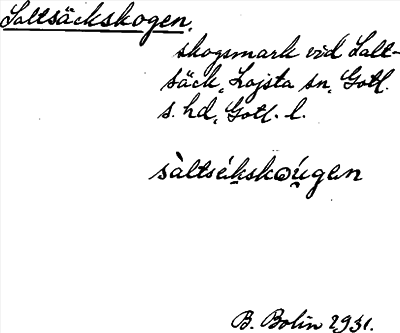 Saltsäckskogen.
skogsmark vid Salt-
säck, Lojsta sn, Gotl.
s. hd, Gotl. l.
sàltsékskωúgen
B. Bolin 1931.